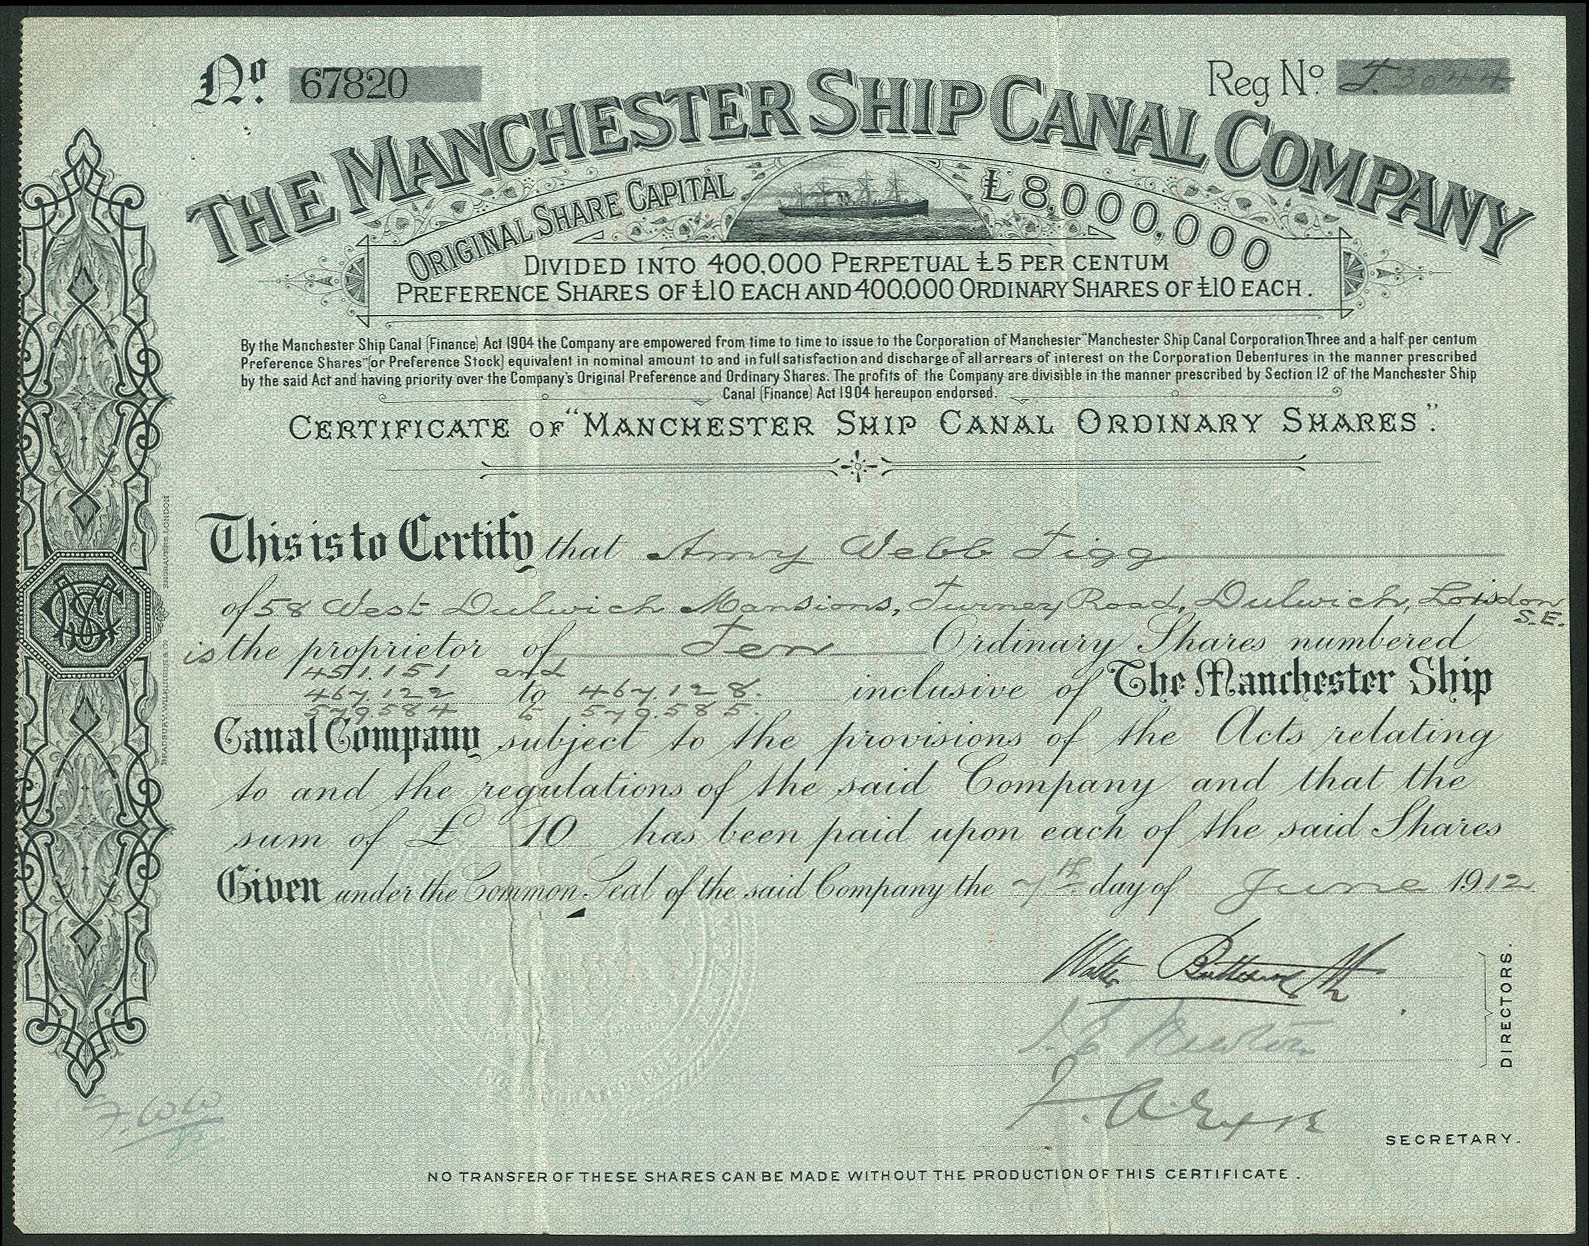 No. 67820
Reg No. F.3044
THE MANCHESTER SHIP CANAL COMPANY
ORIGINAL SHARE CAPITAL £8,000,000
DIVIDED INTO 400,000 PERPETUAL £5 PER CENTUM
PREFERENCE SHARES OF £10 EACH AND 400,000 ORDINARY SHARES OF £10 EACH.
By the Manchester Ship Canal (Finance) Act 1904 the Company are empowered from time to time to issue to the Corporation of Manchester "Manchester Ship Canal Corporation Three and a half per centum
Preference Shares" (or Preference Stock) equivalent in nominal amount to and in full satisfaction and discharge of all arrears of interest on the Corporation Debentures in the manner prescribed
by the said Act and having priority over the Company's Original Preference and Ordinary Shares. The profits of the Company are divisible in the manner prescribed by Section 12 of the Manchester Ship
Canal (Finance) Act 1904 hereupon endorsed.
CERTIFICATE OF "MANCHESTER SHIP CANAL ORDINARY SHARES".
This is to Certify that Amy Webb Tigg
of 58 West Dulwich Mansions, Turney Road, Dulwich, London
S.E.
is the proprietor of Ten Ordinary Shares numbered
451.151 and
467.122 to 467.128. inclusive of The Manchester Ship
579584 to 579.585.
Canal Company subject to the provisions of the Acts relating
to and the regulations of the said Company and that the
sum of £ 10 has been paid upon each of the said Shares
Given under the Common Seal of the said Company the 7th day of June 1912
Walter Butterworth Jr
DIRECTORS.
SECRETARY.
NO TRANSFER OF THESE SHARES CAN BE MADE WITHOUT THE PRODUCTION OF THIS CERTIFICATE.
BRADBURY, WILKINSON & CO. ENGRAVERS, LONDON